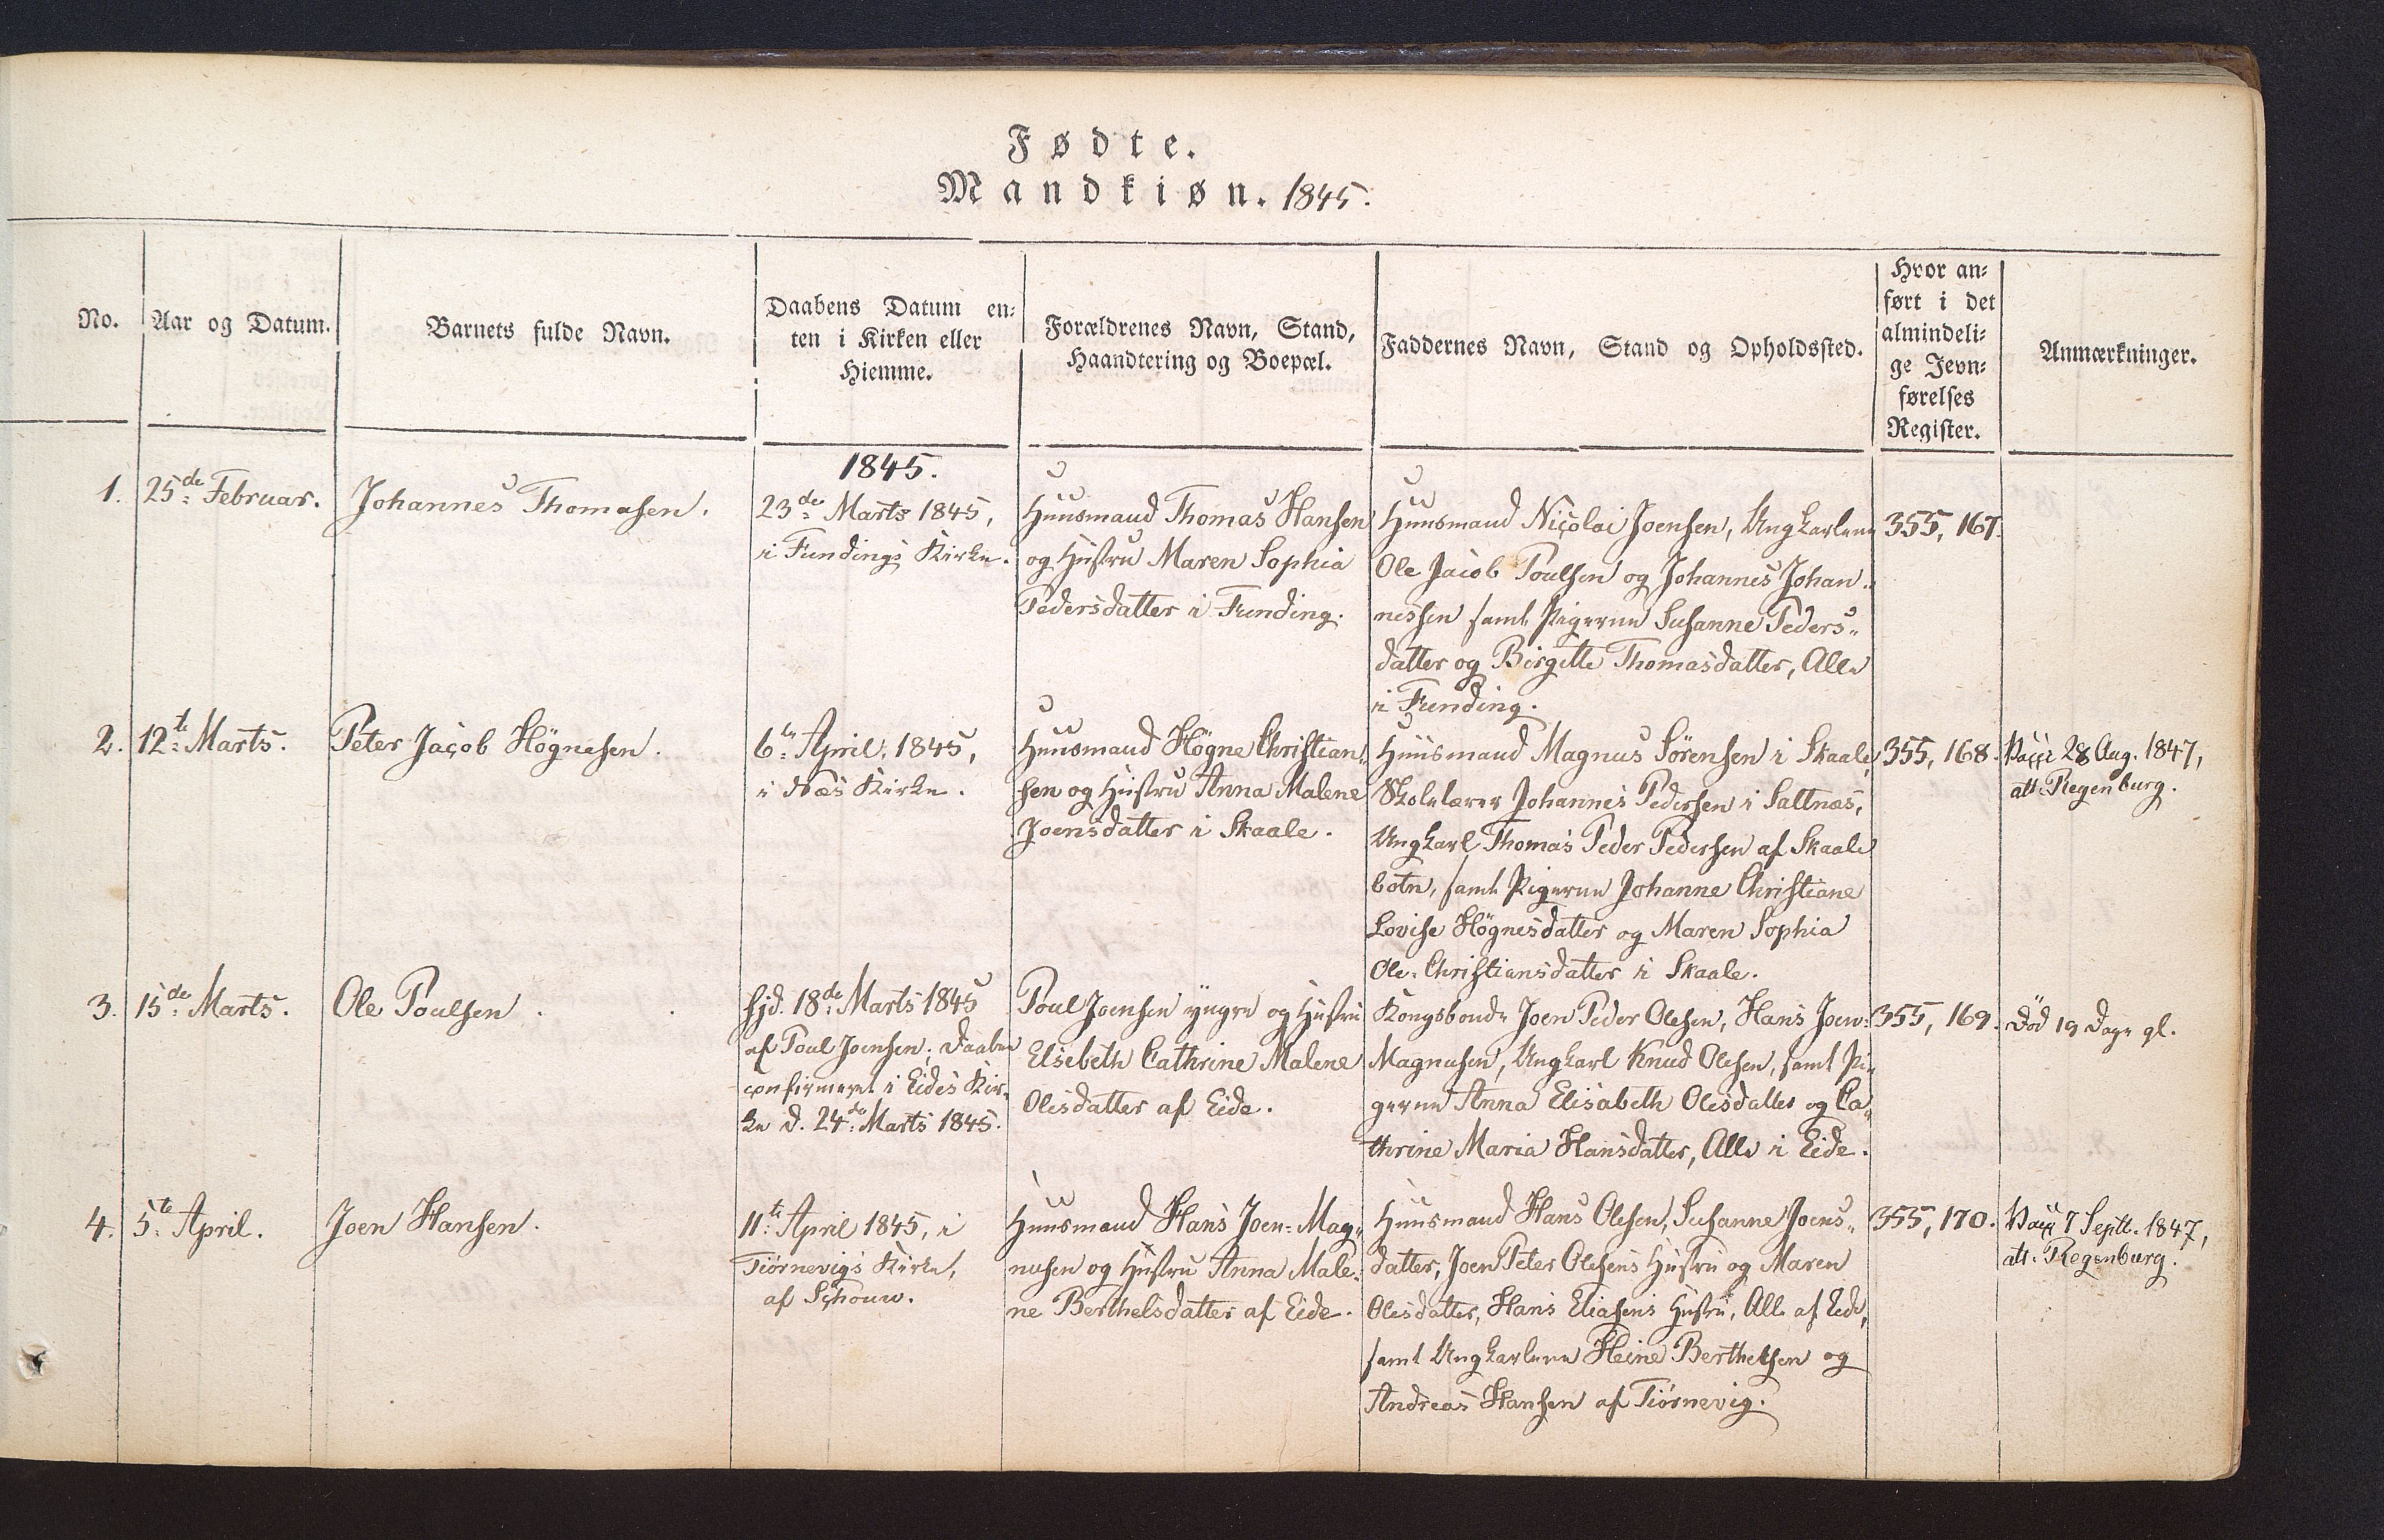 Fødte.
Mandkiøn. 1845.
No.
Aar og Datum.
Barnets fulde Navn.
Daabens Datum en-
ten i Kirken eller
Hiemme.
Forældrenes Navn, Stand,
Haandtering og Boepæl.
Faddernes Navn, Stand og Opholdssted.
Hvor an-
ført i det
almindeli-
ge Jevn-
førelses
Register.
Anmærkninger.
1.
25de Februar.
Johannes Thomasen.
1845.
23de Marts 1845,
i Fundings Kirke.
Huusmand Thomas Hansen
og Hustru Maren Sophia
Pedersdatter i Funding.
Huusmand Nicolai Joensen, Ungkarlene
Ole Jacob Poulsen og Johannes Johan-
nessen samt Pigerne Susanne Peders-
datter og Birgitte Thomasdatter, Alle
i Funding.
355, 167.
2.
12te Marts.
Peter Jacob Högnesen.
6te April, 1845,
i Næs Kirke.
Huusmand Högne Christian-
sen og Hustru Anna Malene
Joensdatter i Skaale.
Huusmand Magnus Sörensen i Skaale,
Skolelærer Johannes Pedersen i Saltnæs,
Ungkarl Thomas Peder Pedersen af Skaale
botn, samt Pigerne Johanne Christiane
Lovise Högnesdatter og Maren Sophia
Ole-Christiansdatter i Skaale.
355, 168.
Vacc 28 Aug. 1847,
att. Regenburg.
3.
15de Marts.
Ole Poulsen
hjd. 18de Marts 1845
af Poul Joensen; Daaben
confirmeret i Eides Kir-
ke d. 24de Marts 1845.
Poul Joensen yngre og Hustru
Elsebeth Cathrine Malene
Olesdatter af Eide.
Kongsbonde Joen Peder Olesen, Hans Joen-
Magnusen, Ungkarl Knud Olesen, samt Pi-
gerne Anna Elisabeth Olesdatter og Ca-
thrine Maria Hansdatter, Alle i Eide.
355, 169.
Död 19 Dage gl.
4.
5te April.
Joen Hansen.
11te April 1845, i
Tiörnevigs Kirke,
af Schouw.
Huusmand Hans Joen-Mag-
nusen og Hustru Anna Male-
ne Berthelsdatter af Eide.
Huusmand Hans Olesen, Susanne Joens-
datter, Joen Peter Olesens Hustru og Maren
Olesdatter, Hans Eliasens Hustru, Alle af Eide,
samt Ungkarlene Heine Berthelsen og
Andreas Hansen af Tiörnevig.
355, 170.
Vacc 7 Septb. 1847,
att. Regenburg.